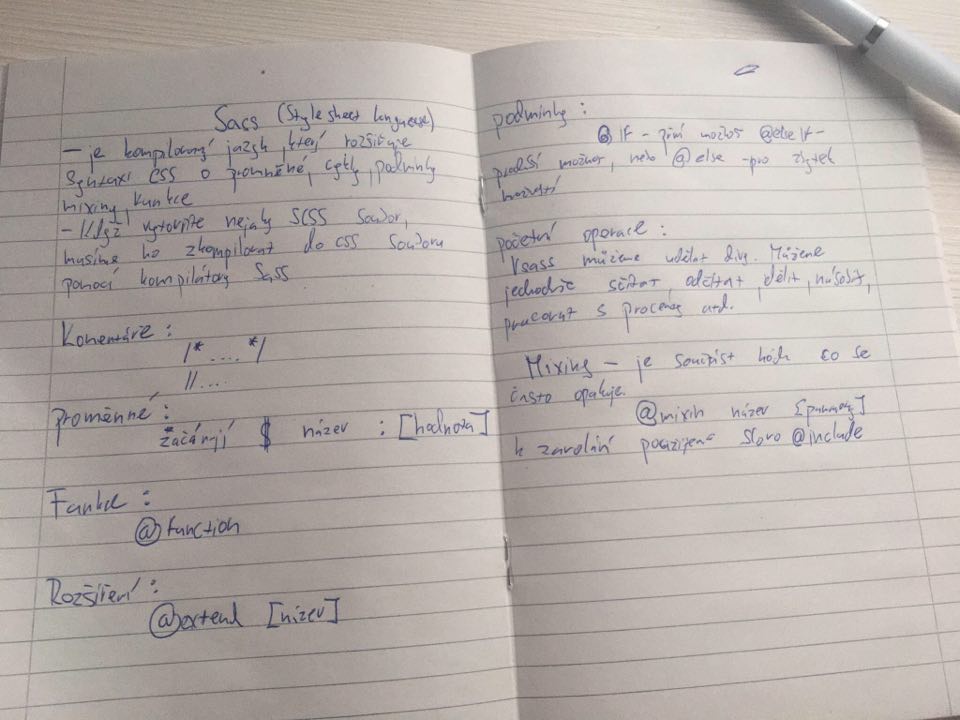 Sass (Stylesheet language)
– je kompilovaný jazyk, který rozšiřuje
Syntaxi CSS o proměnné, cykly, podmínky
mixiny, funkce
– Když vytvoříte nejaky SCSS Soubor,
musíme ho zkompilovat do CSS Souboru
pomocí kompilátoru Sass
Komentáře :
/* .... */
//....
Proměnné :
začínají $ název : [hodnota]
Funkce :
@function
Rozšíření :
@extend [název]
podmínky :
@IF – @else IF –
možnos, nebo @else – pro zbytek
početní operace :
V sass můžeme udělat divy. Můžeme
jednoduše sčítat, odčítat, dělit, násobit,
pracovat s procenty atd.
Mixiny – je co se
často opakuje.
@mixin název [parametry]
k zavolání použijeme slovo @include